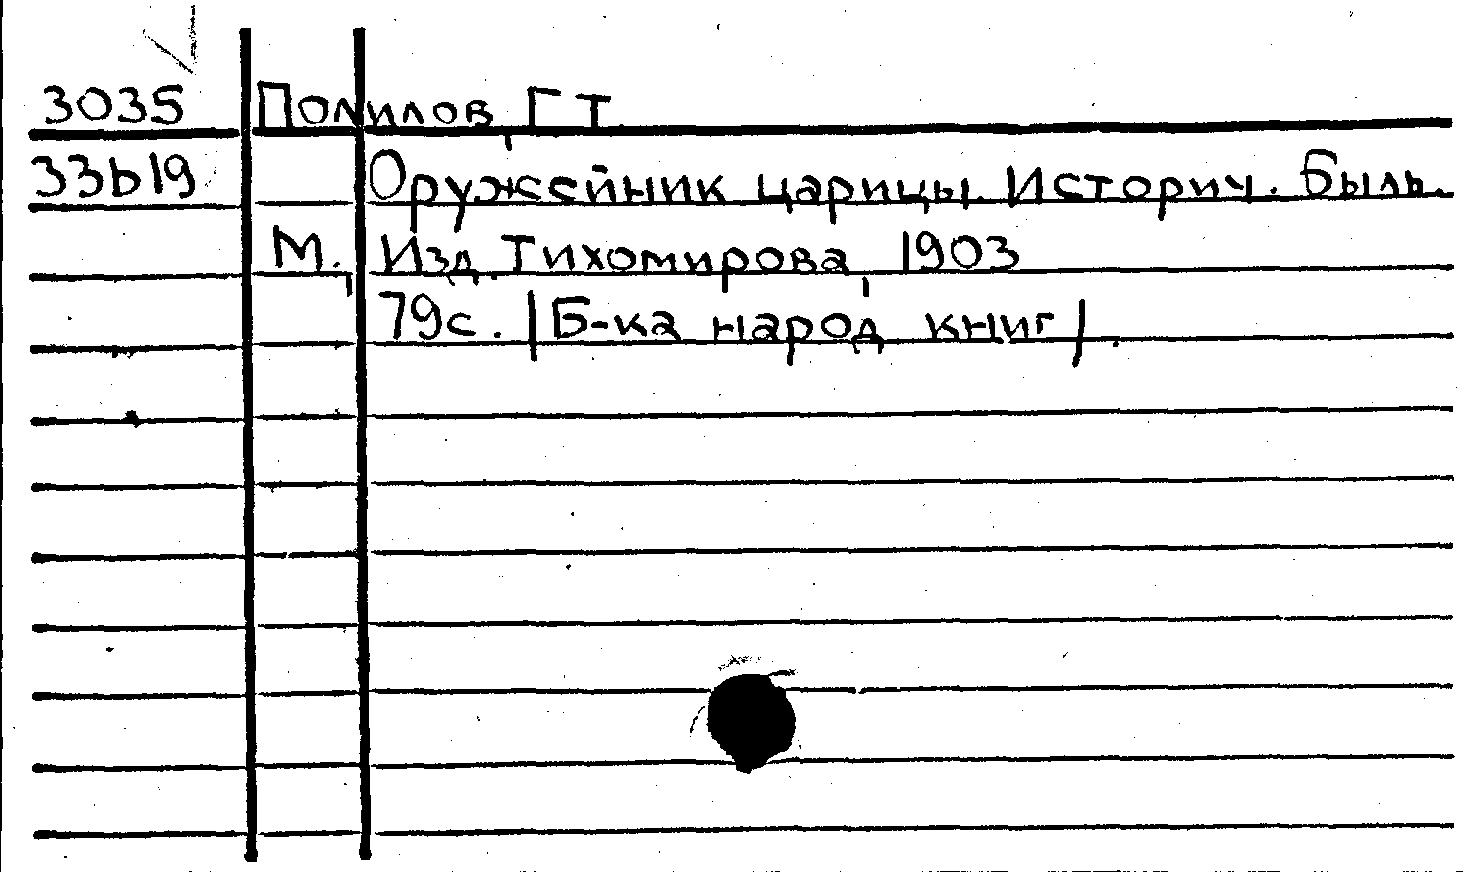 3035 Полилов, Г Т
33b19 Оружейник царицы. Историч. быль.
М., Изд. Тихомирова, 1903
79с. |Б-ка народ. книг|.